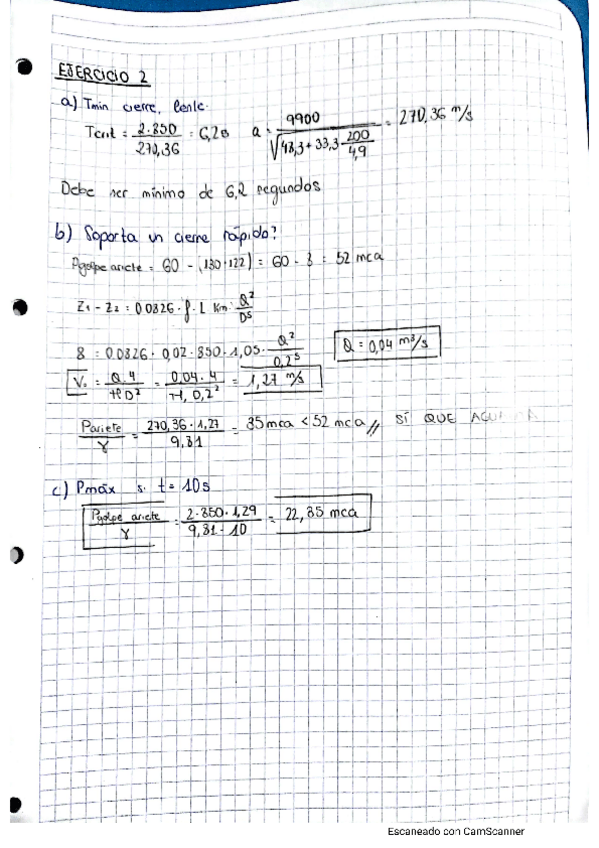 EJERCICIO 2
a) Tmin cierre lento.
Tcrit = 2·850 / 270,36 = 6,2s a = 9900 / √48,3+33,3·200/4,9 = 270,36 m/s
Debe ser mínimo de 6,2 segundos
b) Soporta un cierre rápido?
Pgolpe ariete = 60 - (130-122) = 60 - 8 = 52 mca
Z1 - Z2 = 0.0826 · f · L Km · Q²/D⁵
8 = 0.0826 · 0,02 · 850 · 1,05 · Q²/0,2⁵ Q = 0,04 m³/s
V. = Q·4 / πD² = 0,04·4 / π·0,2² = 1,27 m/s
Pariete / γ = 270,36·1,27 / 9,81 = 35mca < 52 mca // SÍ QUE
c) Pmáx si t = 10s
Pgolpe ariete / γ = 2·850·1,29 / 9,81·10 = 22,35 mca
Escaneado con CamScanner